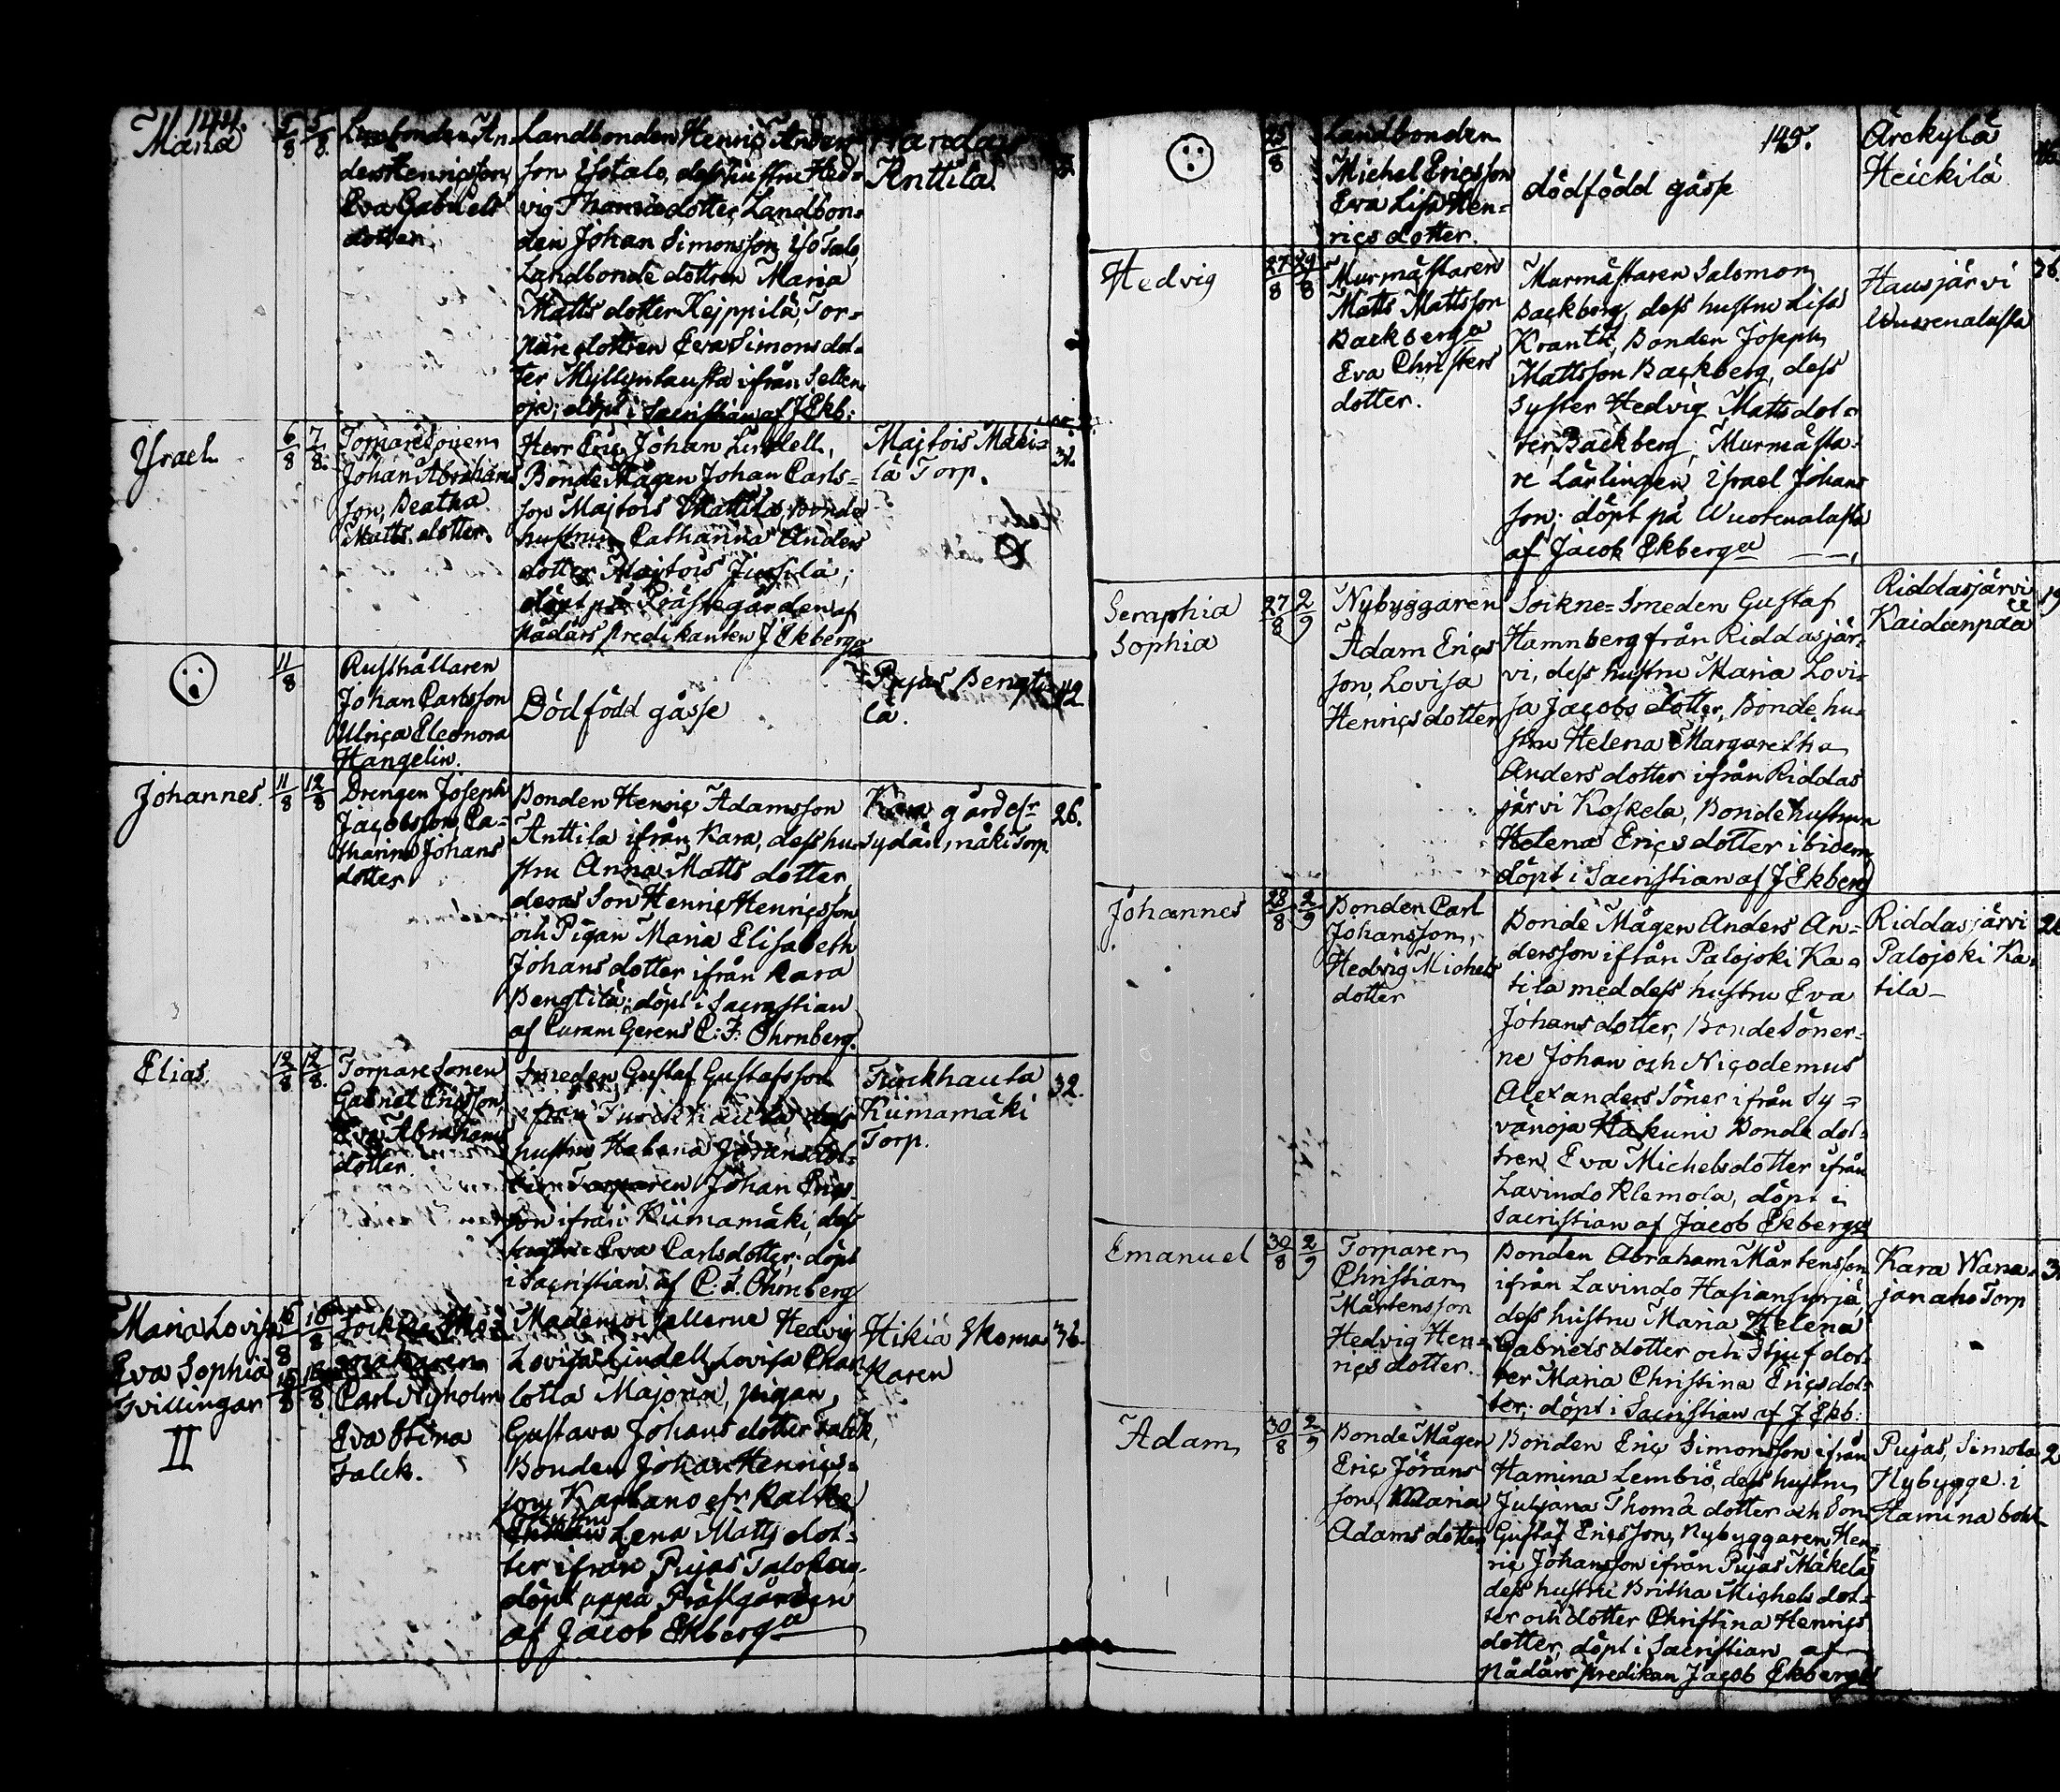 144.
Maria
5/8
5/8.
Landbonden An-
ders Henricsson
Eva Gabriels
dotter.
Landbonden Henric Anders
son Isotalo, dess hustru Hed-
vig Thomæ dotter, Landbon-
den Johan Simonsson Isotalo,
Landbonde dottren Maria
Matts dotter Keippilä, Tor-
pare dottren Eva Simons dot-
ter Myllyntausta ifrån Selten
oja; döpt i Sacristian af J Ekb:
Karidais
Anttila.
Israel
6/8
7/8.
Torparesonen
Johan Abrahams
son, Beatha
Matts dotter.
Herr Eric Johan Lindell,
Bonde Mågen Johan Carls-
son Majtois Mattila, Bonde
hustrun Catharina Anders
dotter Majtois Jussila;
döpt på Prästegården af
Nådårs predikanten J Ekberg
Majtois Mäki-
lä Torp.
31.
11/8
Rusthållaren
Johan Carlsson
Ulrica Eleonora
Hangelin.
Dödfödd gåsse
Pujas Bengti-
lä.
42
Johannes.
11/8
12/8
Drengen Joseph
Jacobsson Ca-
tharina Johans
dotter
Bonden Henric Adamsson
Anttila ifrån Kara, dess hu-
stru Anna Matts dotter
deras Son Henric Henricsson
och Pigan Maria Elisabeth
Johans dotter ifrån Kara
Bengtilä; döpt i Sacrastian
af Curam Gerens C: F: Öhrnberg.
Kara gård efr
sydän, mäki Torp.
26.
Elias.
12/8
12/8.
Torparesonen
Gabriel Ericsson,
Eva Abrahams
dotter.
Smeden Gustaf Gustafsson
ifrån Turckhauta dess
hustru Helena Johans dot-
ter, Torparen Johan Erics
son ifrån Kiimamäki, dess
hustru Eva Carlsdotter; döpt
i Sacristian af C. F. Öhrnberg
Turckhauta
Kiimamäki
Torp.
32.
Maria Lovisa
Eva Sophia
Tvillingar
II
16/8
16/8
16/8
16/8
Sockne Sko-
makaren
Carl Nyholm
Eva Stina
Falck.
Mademoisellerne Hedvig
Lovisa Lindell, Lovisa Char
lotta Majorin, pigan
Gustava Johans dotter Falck,
Bonden Johan Henrics-
son Karhano efr Kalke
hustru Lena Matts dot-
ter ifrån Pujas Talokas,
döpt uppå Prästgården
af Jacob Ekberg
Hikiä Skoma-
karen
36.
145.
25/8
Landbonden
Michel Ericsson
Eva Lisa Hen-
rics dotter.
dödfödd gåsse
Årckylä
Heickilä
Hedvig
27/8
29/8
Murmästaren
Matts Mattsson
Backberg
Eva Christers
dotter.
Murmästaren Salomon
Backberg, dess hustru Lisa
Krantz, Bonden Joseph
Mattsson Backberg, dess
Syster Hedvig Matts dot-
ter Backberg; Murmästa-
re Lärlingen Israel Johans
son; döpt på Wuorenalasta
af Jacob Ekberg
Hausjärvi
Wuorenalasta
36.
Seraphia
Sophia
27/8
2/9
Nybyggaren
Adam Erics
son, Lovisa
Henrics dotter
Sockne-Smeden Gustaf
Hamnberg från Riddasjär-
vi, dess hustru Maria Lovi-
sa Jacobs dotter, Bonde hu-
stru Helena Margaretha
Anders dotter ifrån Riddas
järvi Koskela, Bonde hustrun
Helena Erics dotter ibidem,
döpt i Sacristian af J Ekberg
Riddasjärvi
Kaidanpää
19
Johannes
28/8
2/9
Bonden Carl
Johansson,
Hedvig Michels
dotter
Bonde Mågen Anders An-
dersson ifrån Palojoki Ka-
tila med dess hustru Eva
Johans dotter, Bonde Söner-
ne Johan och Nicodemus
Alexanders Söner ifrån Sy-
vänoja Hakuni Bonde dot-
tren Eva Michelsdotter ifrån
Lavindo Klemola, döpt i
Sacristian af Jacob Ekberg
Riddasjärvi
Palojoki Ka-
tila
Emanuel
30/8
2/9
Torparen
Christian
Mårtensson
Hedvig Hen-
rics dotter.
Bonden Abraham Mårtensson
ifrån Lavindo Hasiansurjä
dess hustru Maria Helena
Gabriels dotter och Stjuf dot-
ter Maria Christina Erics dot-
ter; döpt i Sacristian af J Ekb:
Kara Wana-
janaho Torp
Adam
30/8
2/9
Bonde Mågen
Eric Jörans
son, Maria
Adams dotter
Bonden Eric Simonsson ifrån
Hamina Lembiö, dess hustru
Juliana Thoma dotter och Son
Gustaf Ericsson, Nybyggaren Hen-
ric Johansson ifrån Pujas Mäkelä
dess hustru Britha Michels dot-
ter och dotter Christina Henrics
dotter, döpt i Sacristian af
Nådårs predikan Jacob Ekberg
Pujas, Simola
Nybygge i
Hamina bohl